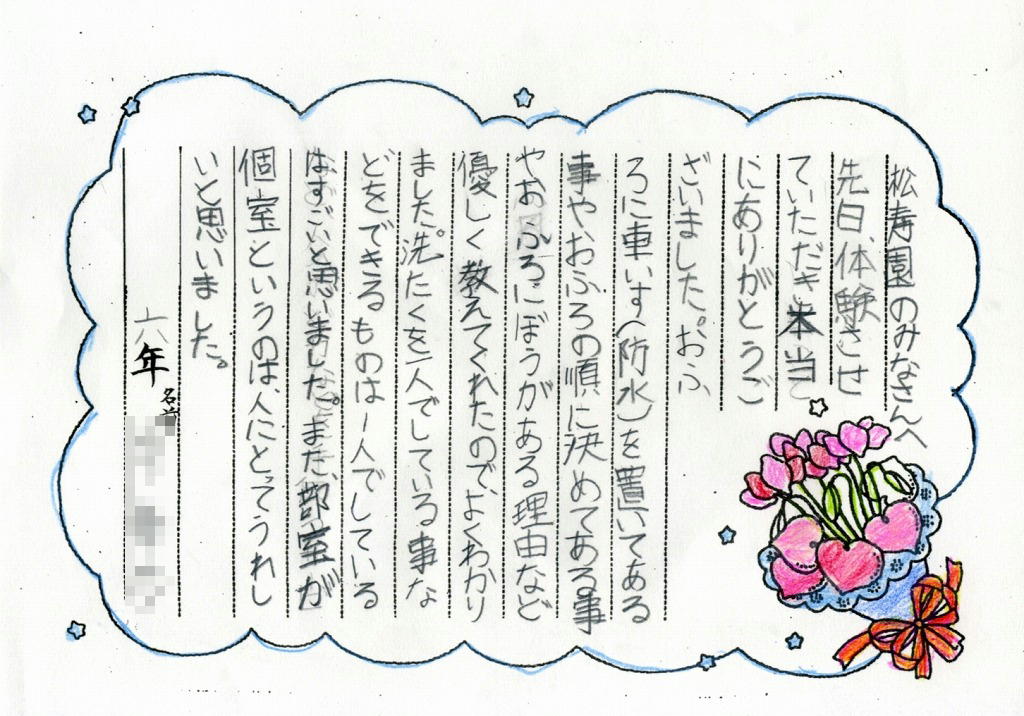 松寿園のみなさんへ
先日、体験させ
ていただき、本当
にありがとうご
ざいました。おふ
ろに車いす(防水)を置いてある
事やおふろの順に決めてある事
やおふろにぼうがある理由など
優しく教えてくれたので、よくわかり
ました。洗たくを一人でしている事な
どをできるものは一人でしている
はすごいと思いました。また、部室が
個室というのは、人にとってうれし
いと思いました。
六年
名前